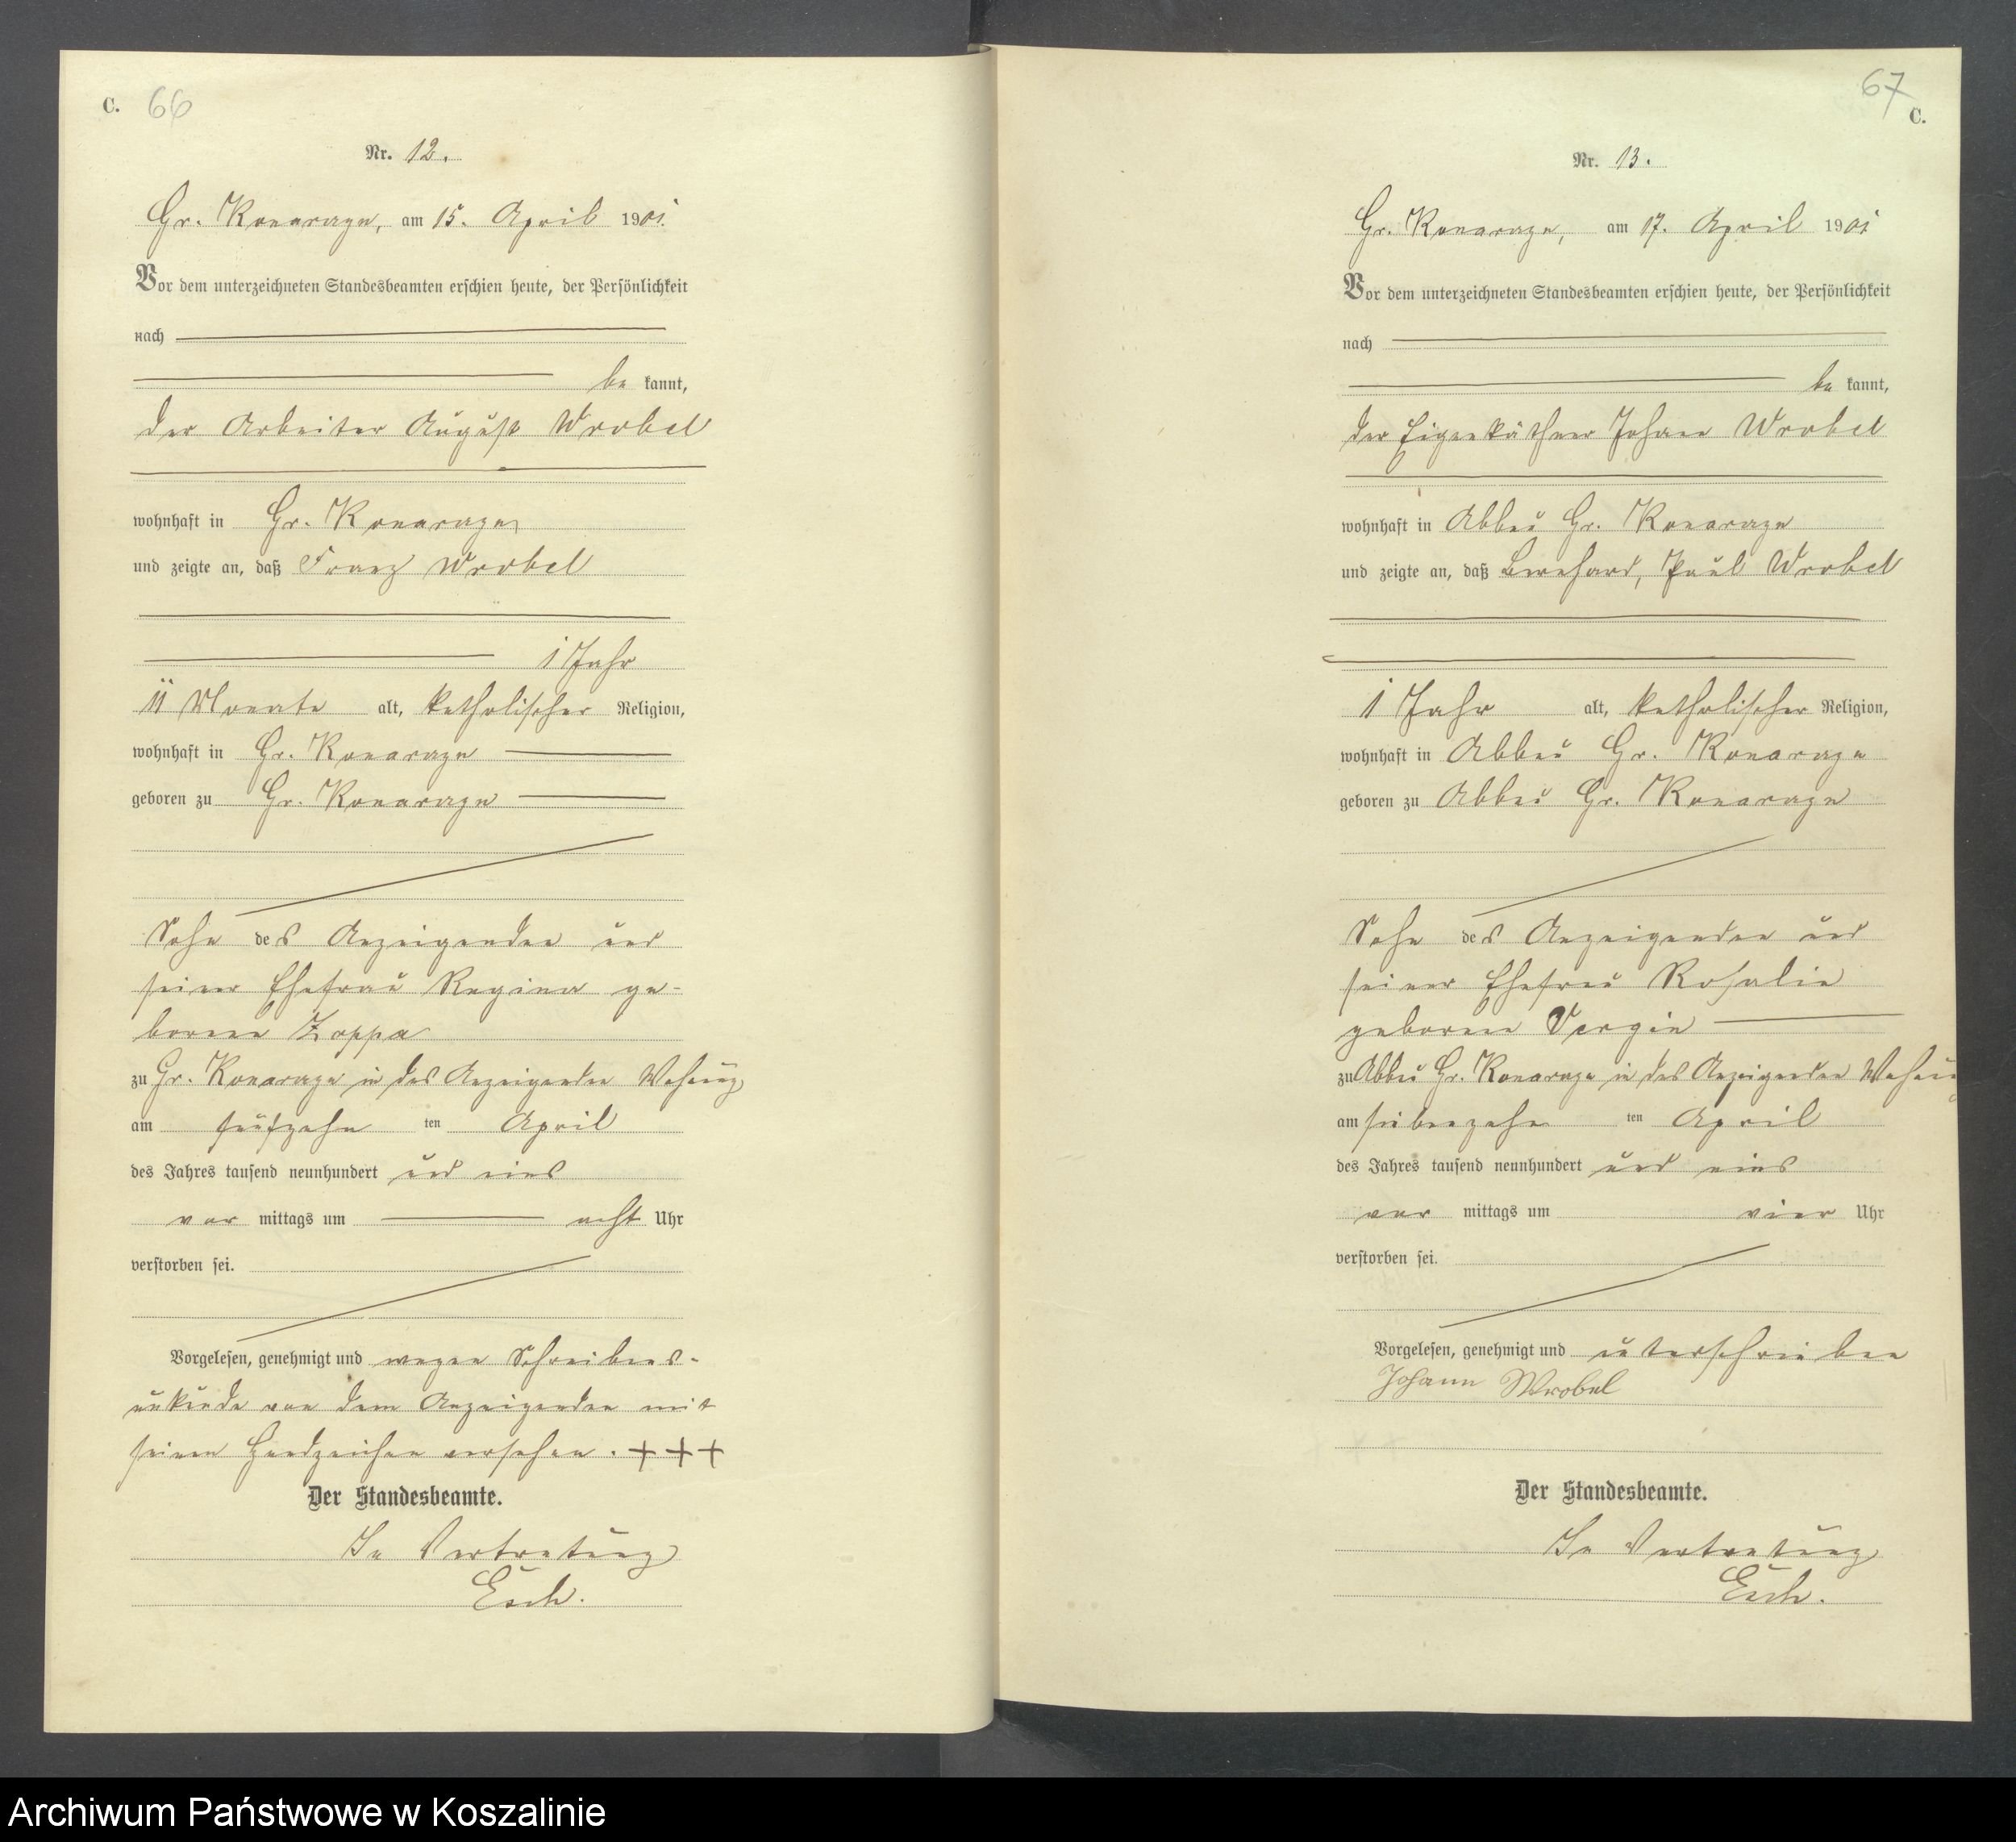 C. 66
Nr. 12.
Gr. Konarzyn, am 15. April 1901.
Vor dem unterzeichneten Standesbeamten erschien heute, der Persönlichkeit
nach
be kannt,
der Arbeiter August Wrobel
wohnhaft in Gr. Konarzyn
und zeigte an, daß Franz Wrobel
1 Jahr
11 Monate alt, katholischer Religion,
wohnhaft in Gr. Konarzyn
geboren zu Gr. Konarzyn
Sohn des Anzeigenden und
seiner Ehefrau Regina ge-
borene Zoppa
zu Gr. Konarzyn in des Anzeigenden Wohnung
am fünfzehn ten April
des Jahres tausend neunhundert und eins
vor mittags um acht Uhr
verstorben sei.
Vorgelesen, genehmigt und wegen Schreibens-
unkunde von dem Anzeigenden mit
seinem Handzeichen versehen. +++
Der Standesbeamte.
In Vertretung
67
C.
Nr. 13.
Gr. Konarzyn, am 17. April 1901
Vor dem unterzeichneten Standesbeamten erschien heute, der Persönlichkeit
nach
be kannt,
der Eigenkäthner Johann Wrobel
wohnhaft in Abbau Gr. Konarzyn
und zeigte an, daß Bernhard, Paul Wrobel
1 Jahr alt, katholischer Religion,
wohnhaft in Abbau Gr. Konarzyn
geboren zu Abbau Gr. Konarzyn
Sohn des Anzeigenden und
seiner Ehefrau Rosalie
geborene Vergin
zu Abbau Gr. Konarzyn in des Anzeigenden Wohnung
am siebenzehn ten April
des Jahres tausend neunhundert und eins
vor mittags um vier Uhr
verstorben sei.
Vorgelesen, genehmigt und unterschrieben
Johann Wrobel
Der Standesbeamte.
In Vertretung
Archiwum Państwowe w Koszalinie